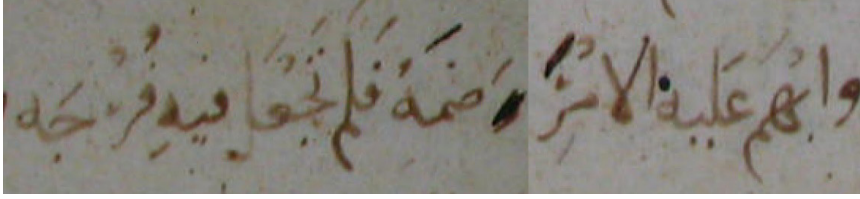 وابهم عليه الامر ضمه فلم تجعل فيه فرجه